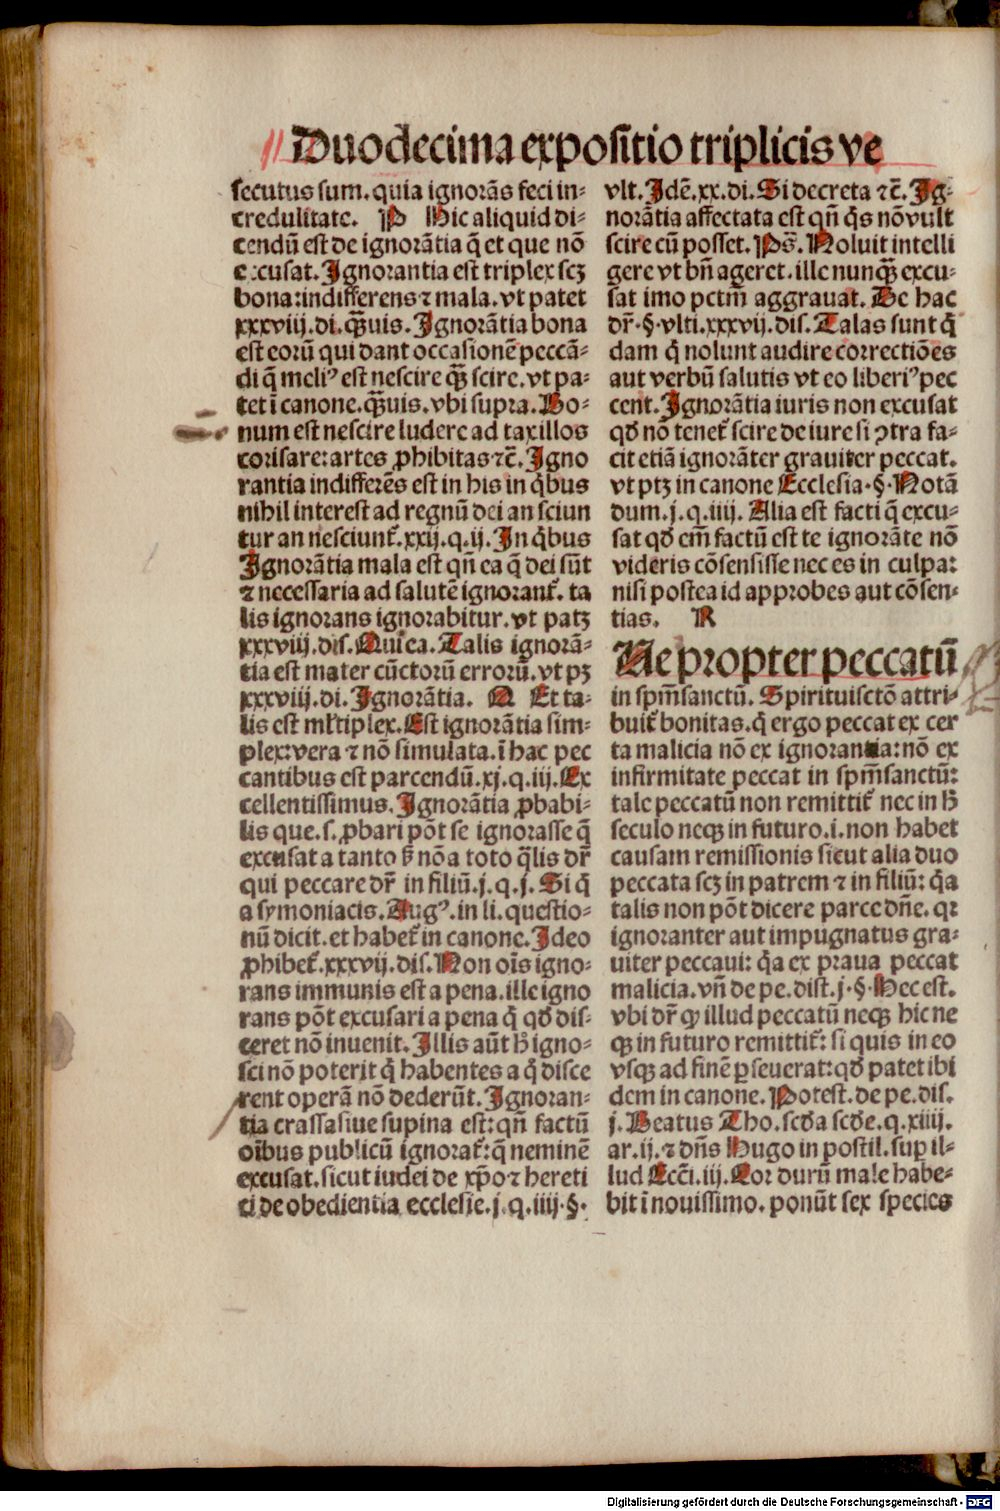 Duodecima expositio triplicis ve
secutus sum. quia ignorãs feci in-
credulitate. P Hic aliquid di-
cendũ est de ignorãtia q̃ et que nõ
excusat. Ignorantia est triplex scʒ
bona: indifferens ⁊ mala. vt patet
xxxviij. di. q̃uis. Ignorãtia bona
est eorũ qui dant occasionẽ peccã-
di q̃ meliꝰ est nescire q̃ȝ scire. vt pa-
tet ĩ canone. q̃uis. vbi supra. Bo-
num est nescire ludere ad taxillos
corisare: artes ꝓhibitas ⁊c̃. Igno
rantia indifferẽs est in his in q̃bus
nihil interest ad regnũ dei an sciun
tur an nesciunt̃. xxij. q. ij. In q̃bus
Ignorãtia mala est qñ ea q̃ dei sũt
⁊ necessaria ad salutẽ ignorant̃. ta
lis ignorans ignorabitur. vt patʒ
xxxviij. dis. Qui ea. Talis ignorã-
tia est mater cũctorũ errorũ. vt pʒ
xxxviij. di. Ignorãtia. Q Et ta-
lis est mĩtiplex. Est ignorãtia sim-
plex: vera ⁊ nõ simulata. ĩ hac pec
cantibus est parcendũ. xj. q. iij. Ex
cellentissimus. Ignorãtia ꝓbabi-
lis que. s. ꝓbari põt se ignorasse q̃
excusat a tanto sȝ nõ a toto q̃lis dr̃
qui peccare dr̃ in filiũ. j. q. j. Si q̃
a symoniacis. Augꝰ. in li. questio-
nũ dicit. et habet̃ in canone. Ideo
ꝓhibet̃. xxxvij. dis. Non oĩs igno-
rans immunis est a pena. ille igno
rans põt excusari a pena q̃ qd̃ dis-
ceret nõ inuenit. Illis aũt h̃ igno-
sci nõ poterit q̃ habentes a q̃ disce
rent operã nõ dederũt. Ignoran-
tia crassa siue supina est: qñ factũ
oĩbus publicũ ignorat̃: q̃ neminẽ
excusat. sicut iudei de xp̃o ⁊ hereti
ci de obedientia ecclesie. j. q. iiij. §.
vlt. Idẽ. xx. di. Si decreta ⁊c̃. Ig-
norãtia affectata est qñ q̃s nõ vult
scire cũ posset. Ps̃. Noluit intelli
gere vt bñ ageret. ille nunq̃ȝ excu-
sat imo pctm̃ aggrauat. De hac
dr̃. §. vlti. xxxvij. dis. Talas sunt q̃
dam q̃ nolunt audire correctiões
aut verbũ salutis vt eo liberiꝰ pec
cent. Ignorãtia iuris non excusat
qd̃ nõ tenet̃ scire de iure si ꝯtra fa-
cit etiã ignorãter grauiter peccat.
vt ptʒ in canone Ecclesia. §. Notã
dum. j. q. iiij. Alia est facti q̃ excu-
sat qd̃ em̃ factũ est te ignorãte nõ
videris cõsensisse nec es in culpa:
nisi postea id approbes aut cõsen-
tias. R
Ne propter peccatũ
in spm̃sanctũ. Spirituisctõ attri-
buit̃ bonitas. q̃ ergo peccat ex cer
ta malicia nõ ex ignorantia: nõ ex
infirmitate peccat in spm̃sanctũ:
tale peccatũ non remittit̃ nec in h̃
seculo neqȝ in futuro. i. non habet
causam remissionis sicut alia duo
peccata scʒ in patrem ⁊ in filiũ: q̃a
talis non põt dicere parce dñe. qꝛ
ignoranter aut impugnatus gra-
uiter peccaui: q̃a ex praua peccat
malicia. vñ de pe. dist. j. §. Hec est.
vbi dr̃ ꝙ illud peccatũ neqȝ hic ne
qȝ in futuro remittit̃: si quis in eo
vsqȝ ad finẽ ꝑseuerat: qd̃ patet ibi
dem in canone. Potest. de pe. dis.
j. Beatus Tho. scd̃a scd̃e. q. xiiij.
ar. ij. ⁊ dñs Hugo in postil. suꝑ il-
lud Ecc̃i. iii. Cor durũ male habe-
bit ĩ nouissimo. ponũt sex species
Digitalisierung gefördert durch die Deutsche Forschungsgemeinschaft - DFG